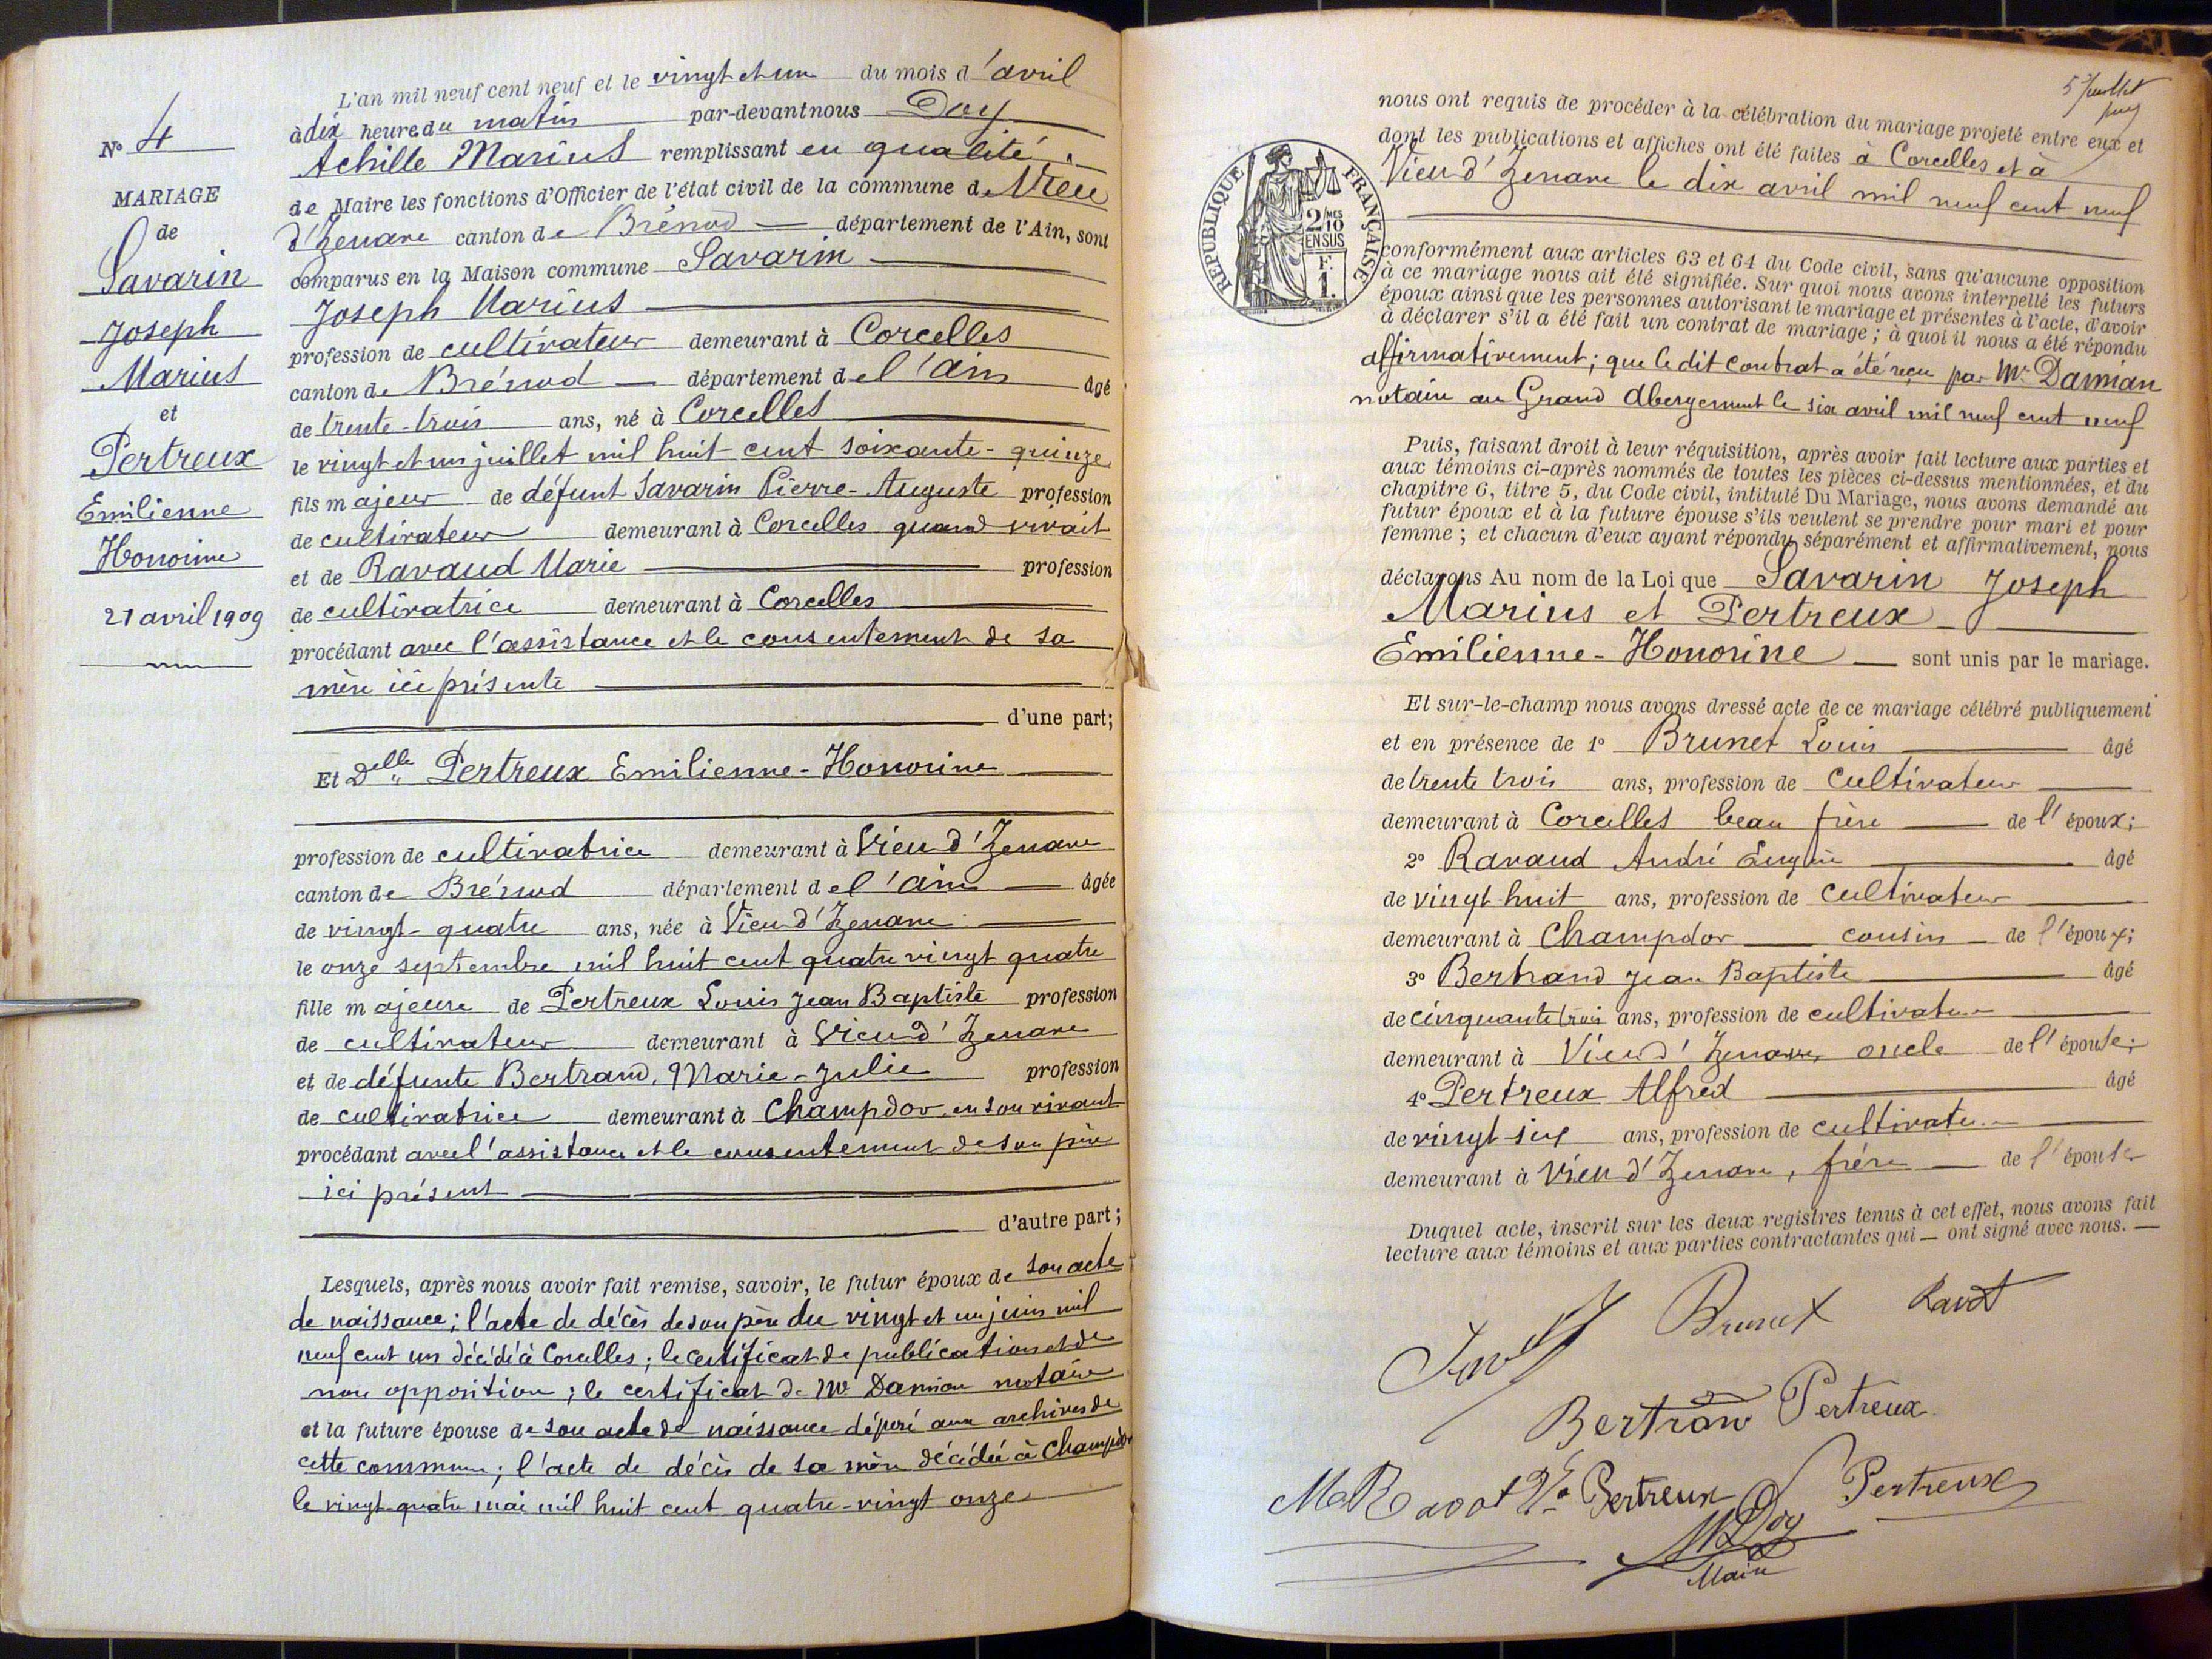 L'an mil neuf cent neuf et le vingt et un du mois d'avril
à dix heure du matin par-devant nous Doy
Achille Marius remplissant en qualité
de Maire les fonctions d'Officier de l'état civil de la commune de Vieu
d'Izenave canton de Brénod département de l'Ain, sont
comparus en la Maison commune Savarin
Joseph Marius
profession de cultivateur demeurant à Corcelles
canton de Brénod département de l'Ain âgé
de trente-trois ans, né à Corcelles
le vingt et un juillet mil huit cent soixante-quinze
fils majeur de défunt Savarin Pierre-Auguste profession
de cultivateur demeurant à Corcelles quand vivait
et de Ravaud Marie profession
de cultivatrice demeurant à Corcelles
procédant avec l'assistance et le consentement de sa
mère ici présente
d'une part;
Et Delle Pertreux Emilienne-Honorine
profession de cultivatrice demeurant à Vieu d'Izenave
canton de Brénod département de l'Ain âgée
de vingt-quatre ans, née à Vieu d'Izenave
le onze septembre mil huit cent quatre vingt quatre
fille majeure de Pertreux Louis Jean Baptiste profession
de cultivateur demeurant à Vieu d'Izenave
et de défunte Bertrand Marie-Julie profession
de cultivatrice demeurant à Champdor en son vivant
procédant avec l'assistance et le consentement de son père
ici présent
d'autre part;
Lesquels, après nous avoir fait remise, savoir, le futur époux de son acte
de naissance; l'acte de décès de son père du vingt et un juin mil
neuf cent un décédé à Corcelles; le certificat de publication et de
non opposition; le certificat de Me Damian notaire
et la future épouse de son acte de naissance déposé aux archives de
cette commune; l'acte de décès de sa mère décédée à Champdor
le vingt-quatre mai mil huit cent quatre-vingt onze
N° 4
MARIAGE
de
Savarin
Joseph
Marius
et
Pertreux
Emilienne
Honorine
21 avril 1909
5 Juillet
nous ont requis de procéder à la célébration du mariage projeté entre eux et
dont les publications et affiches ont été faites à Corcelles et à
Vieu d'Izenave le dix avril mil neuf cent neuf
RÉPUBLIQUE FRANÇAISE
2/10 MES
EN SUS
F.
1.
conformément aux articles 63 et 64 du Code civil, sans qu'aucune opposition
à ce mariage nous ait été signifiée. Sur quoi nous avons interpellé les futurs
époux ainsi que les personnes autorisant le mariage et présentes à l'acte, d'avoir
à déclarer s'il a été fait un contrat de mariage; à quoi il nous a été répondu
affirmativement; que le dit contrat a été reçu par Me Damian
notaire au Grand Abergement le six avril mil neuf cent neuf
Puis, faisant droit à leur réquisition, après avoir fait lecture aux parties et
aux témoins ci-après nommés de toutes les pièces ci-dessus mentionnées, et du
chapitre 6, titre 5, du Code civil, intitulé Du Mariage, nous avons demandé au
futur époux et à la future épouse s'ils veulent se prendre pour mari et pour
femme; et chacun d'eux ayant répondu séparément et affirmativement, nous
déclarons Au nom de la Loi que Savarin Joseph
Marius et Pertreux
Emilienne-Honorine sont unis par le mariage.
Et sur-le-champ nous avons dressé acte de ce mariage célébré publiquement
et en présence de 1° Brunet Louis âgé
de trente trois ans, profession de cultivateur
demeurant à Corcelles beau frère de l'époux;
2° Ravaud André Eugène âgé
de vingt-huit ans, profession de cultivateur
demeurant à Champdor cousin de l'époux;
3° Bertrand Jean Baptiste âgé
de cinquante trois ans, profession de cultivateur
demeurant à Vieu d'Izenave, oncle de l'épouse;
4° Pertreux Alfred âgé
de vingt-six ans, profession de cultivateur
demeurant à Vieu d'Izenave, frère de l'épouse
Duquel acte, inscrit sur les deux registres tenus à cet effet, nous avons fait
lecture aux témoins et aux parties contractantes qui — ont signé avec nous. —
Brunet Ravot
Bertran Pertreux
Ma Ravot Ve Pertreux Pertreux
M Doy
Maire